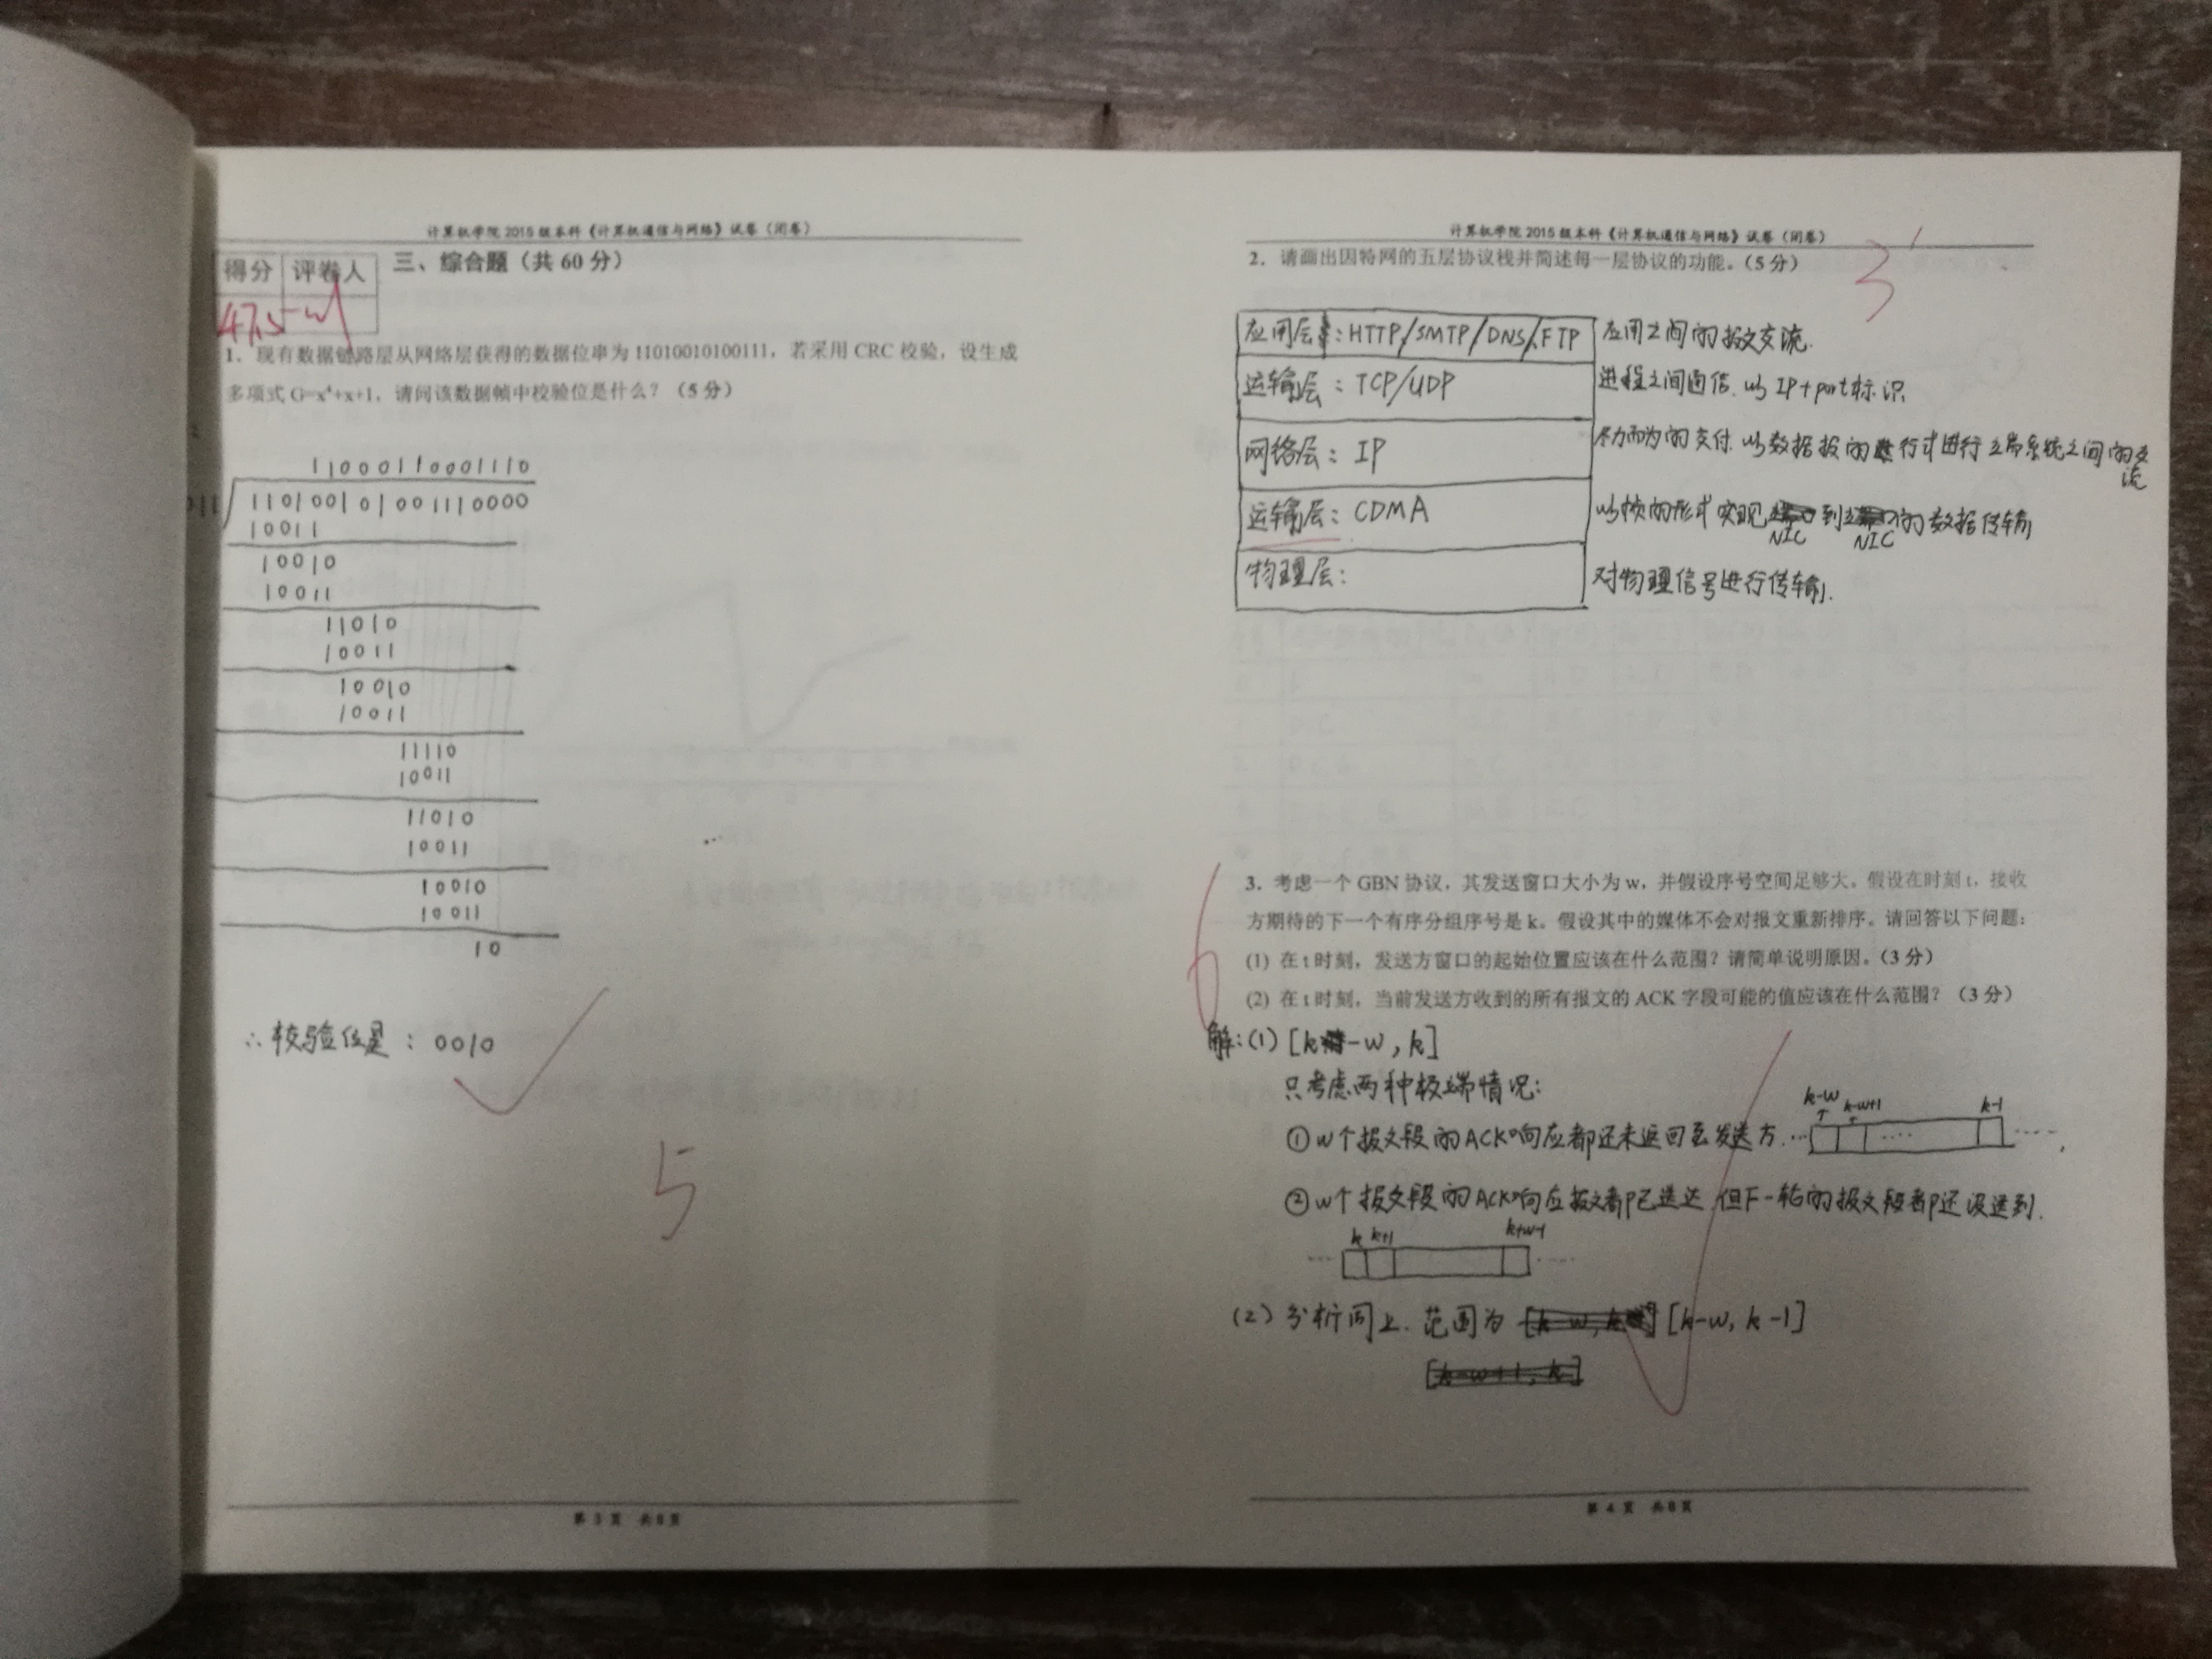 计算机学院 2015 级本科《计算机通信与网络》试卷（闭卷）
得分 评卷人
47.5
三、综合题（共 60 分）
1．现有数据链路层从网络层获得的数据位串为 11010010100111，若采用 CRC 校验，设生成
多项式 G=x⁴+x+1，请问该数据帧中校验位是什么？（5 分）
11000110001110
110100101001110000
10011
10010
10011
11010
10011
10010
10011
11110
10011
11010
10011
10010
10011
10
∴校验位是：0010
5
第 3 页 共 8 页
计算机学院 2015 级本科《计算机通信与网络》试卷（闭卷）
2．请画出因特网的五层协议栈并简述每一层协议的功能。（5 分）
3
应用层：HTTP/SMTP/DNS/FTP 应用之间的报文交流.
运输层：TCP/UDP 进程之间通信.以 IP+port标识
网络层：IP 尽力而为的交付.以数据报的形式进行立端系统之间的交流
运输层：CDMA 以帧的形式实现NIC到NIC的数据传输
物理层： 对物理信号进行传输.
6
3．考虑一个 GBN 协议，其发送窗口大小为 w，并假设序号空间足够大。假设在时刻 t，接收
方期待的下一个有序分组序号是 k。假设其中的媒体不会对报文重新排序。请回答以下问题：
(1) 在 t 时刻，发送方窗口的起始位置应该在什么范围？请简单说明原因。（3 分）
(2) 在 t 时刻，当前发送方收到的所有报文的 ACK 字段可能的值应该在什么范围？（3 分）
解：(1) [k-w, k]
只考虑两种极端情况：
①w个报文段的ACK响应都还未返回至发送方.
k-w k-w+1 k-1
②w个报文段的ACK响应报文都已送达,但下一轮的报文段都还没送到.
k k+1 k+w-1
(2) 分析同上.范围为 [k-w, k-1]
第 4 页 共 8 页